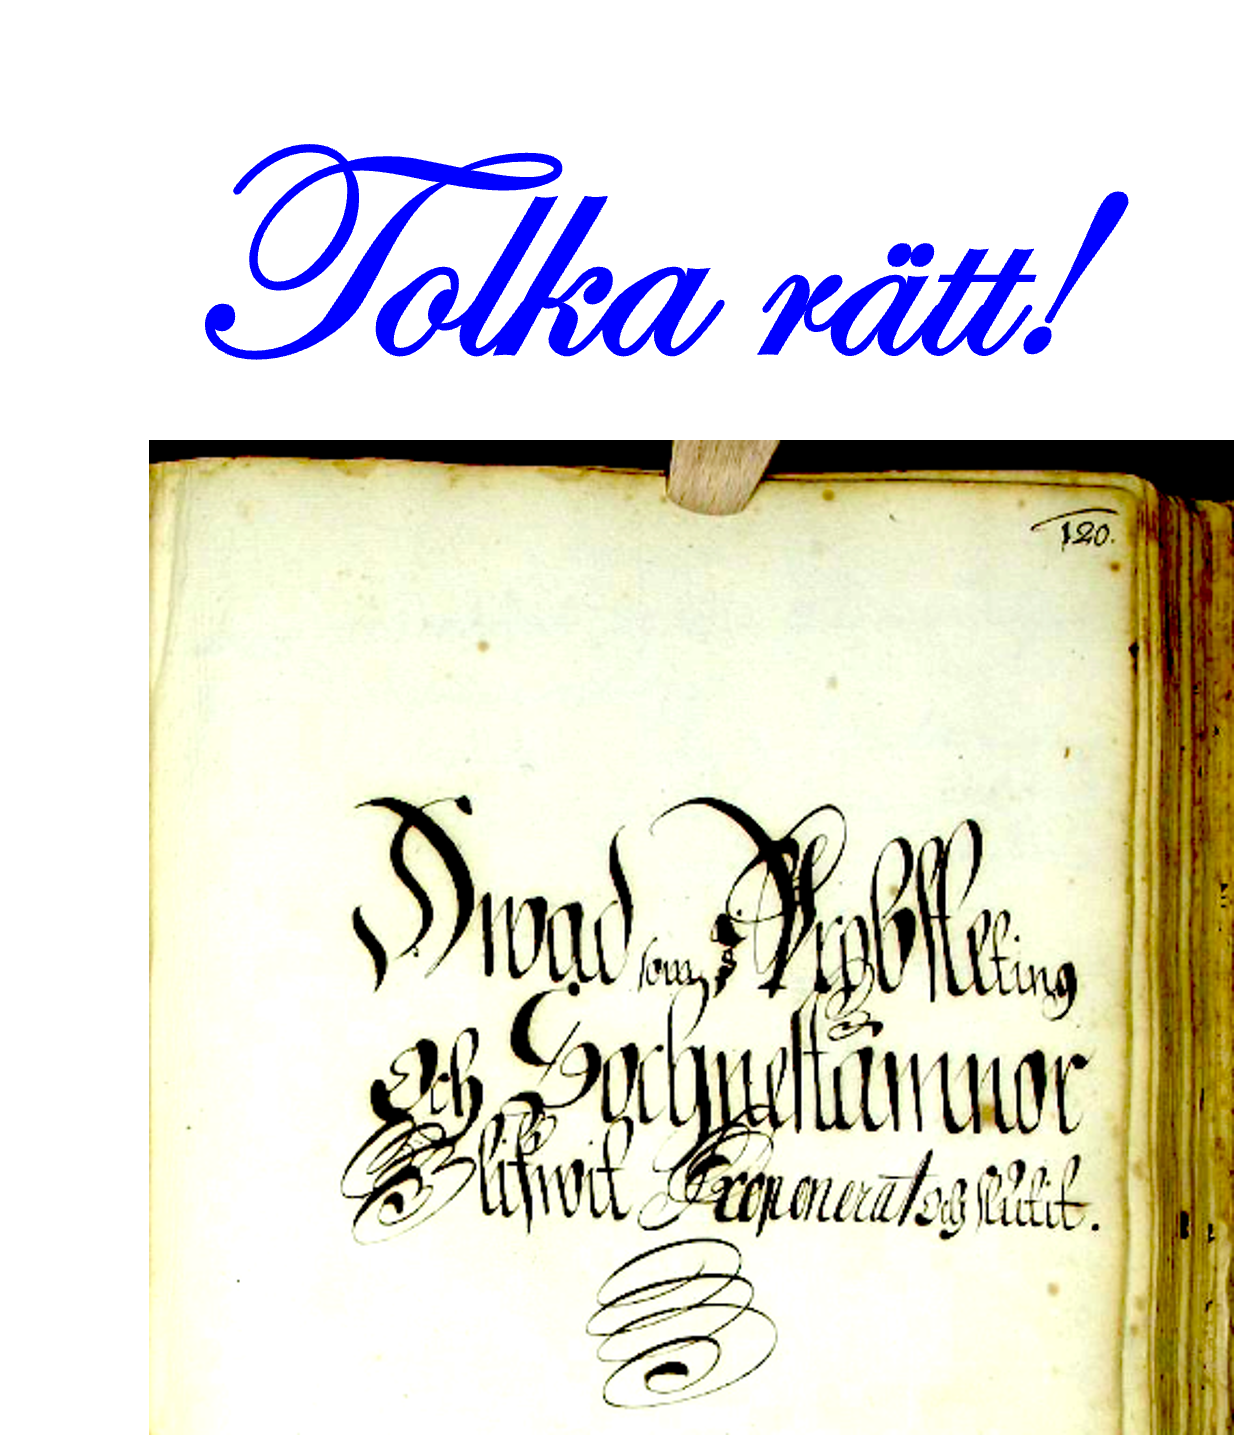 Tolka rätt!
120.
Hwad som i Probsteting
och Sochnestämnor
Blifwit Proponerat och slutit.